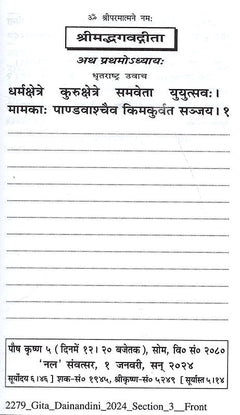 ॐ श्रीपरमात्मने नमः
श्रीमद्भगवद्गीता
अथ प्रथमोऽध्यायः
धृतराष्ट्र उवाच
धर्मक्षेत्रे कुरुक्षेत्रे समवेता युयुत्सवः।
मामकाः पाण्डवाश्चैव किमकुर्वत सञ्जय। १
पौष कृष्ण ५ (दिनमें १२। २० बजेतक), सोम, वि० सं० २०८०
'नल' संवत्सर, १ जनवरी, सन् २०२४
सूर्योदय ६।४६] शक-सं० १९४५, श्रीकृष्ण-सं० ५२४९ [सूर्यास्त ५।१४
2279_Gita_Dainandini_2024_Section_3__Front